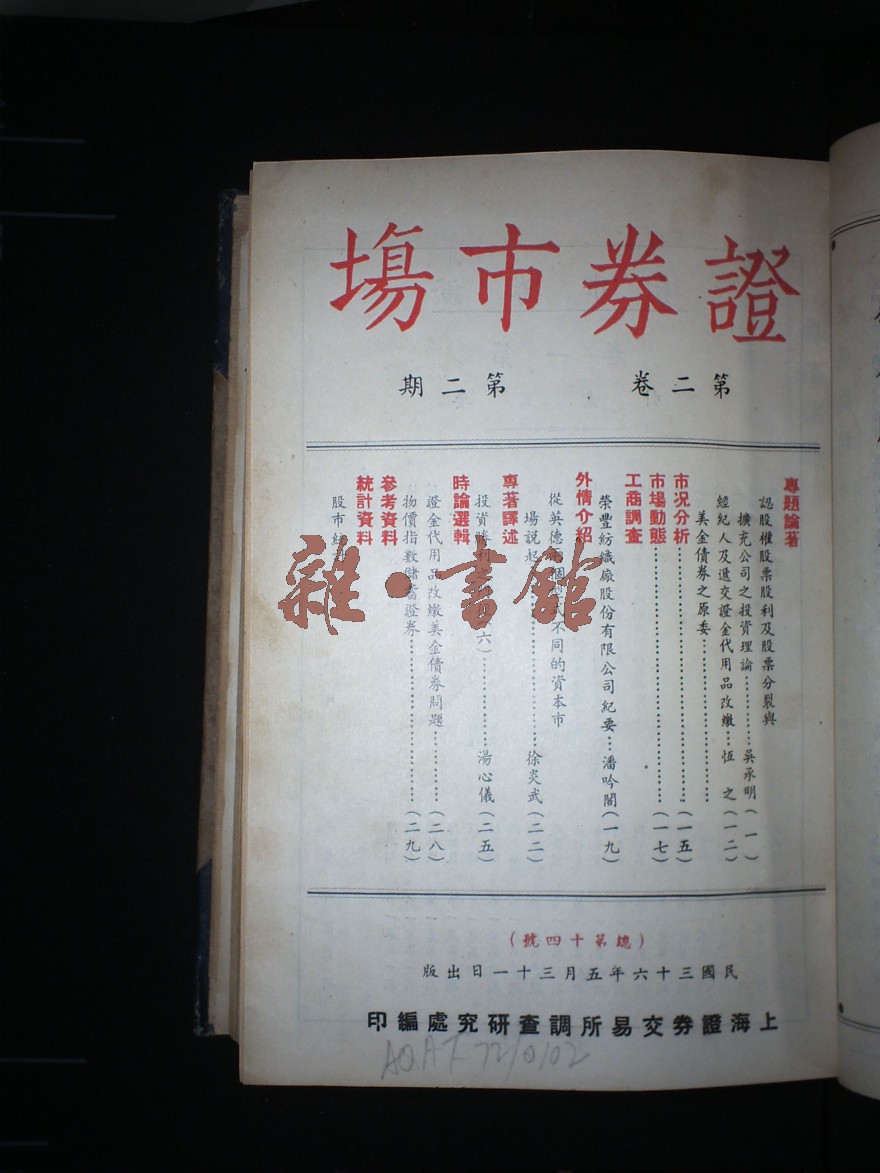 證券市場
第二卷 第二期
專題論著
認股權股票股利及股票分裂與
擴充公司之投資理論…………吳承明(一)
經紀人及遞交證金代用品改繳…恆 之(一二)
美金債券之原委…………
市況分析…………(一五)
市場動態…………(一七)
工商調查
榮豐紡織廠股份有限公司紀要…潘吟閣(一九)
外情介紹
從英德 不同的資本市
場說起…………徐炎武(二二)
專著譯述
投資 六)…………湯心儀(二五)
時論選輯
證金代用品改繳美金債券問題…………(二八)
物價指數儲蓄證券…………(二九)
參考資料
統計資料
股市
雜·書館
(總第十四號)
民國三十六年五月三十一日出版
上海證券交易所調查研究處編印